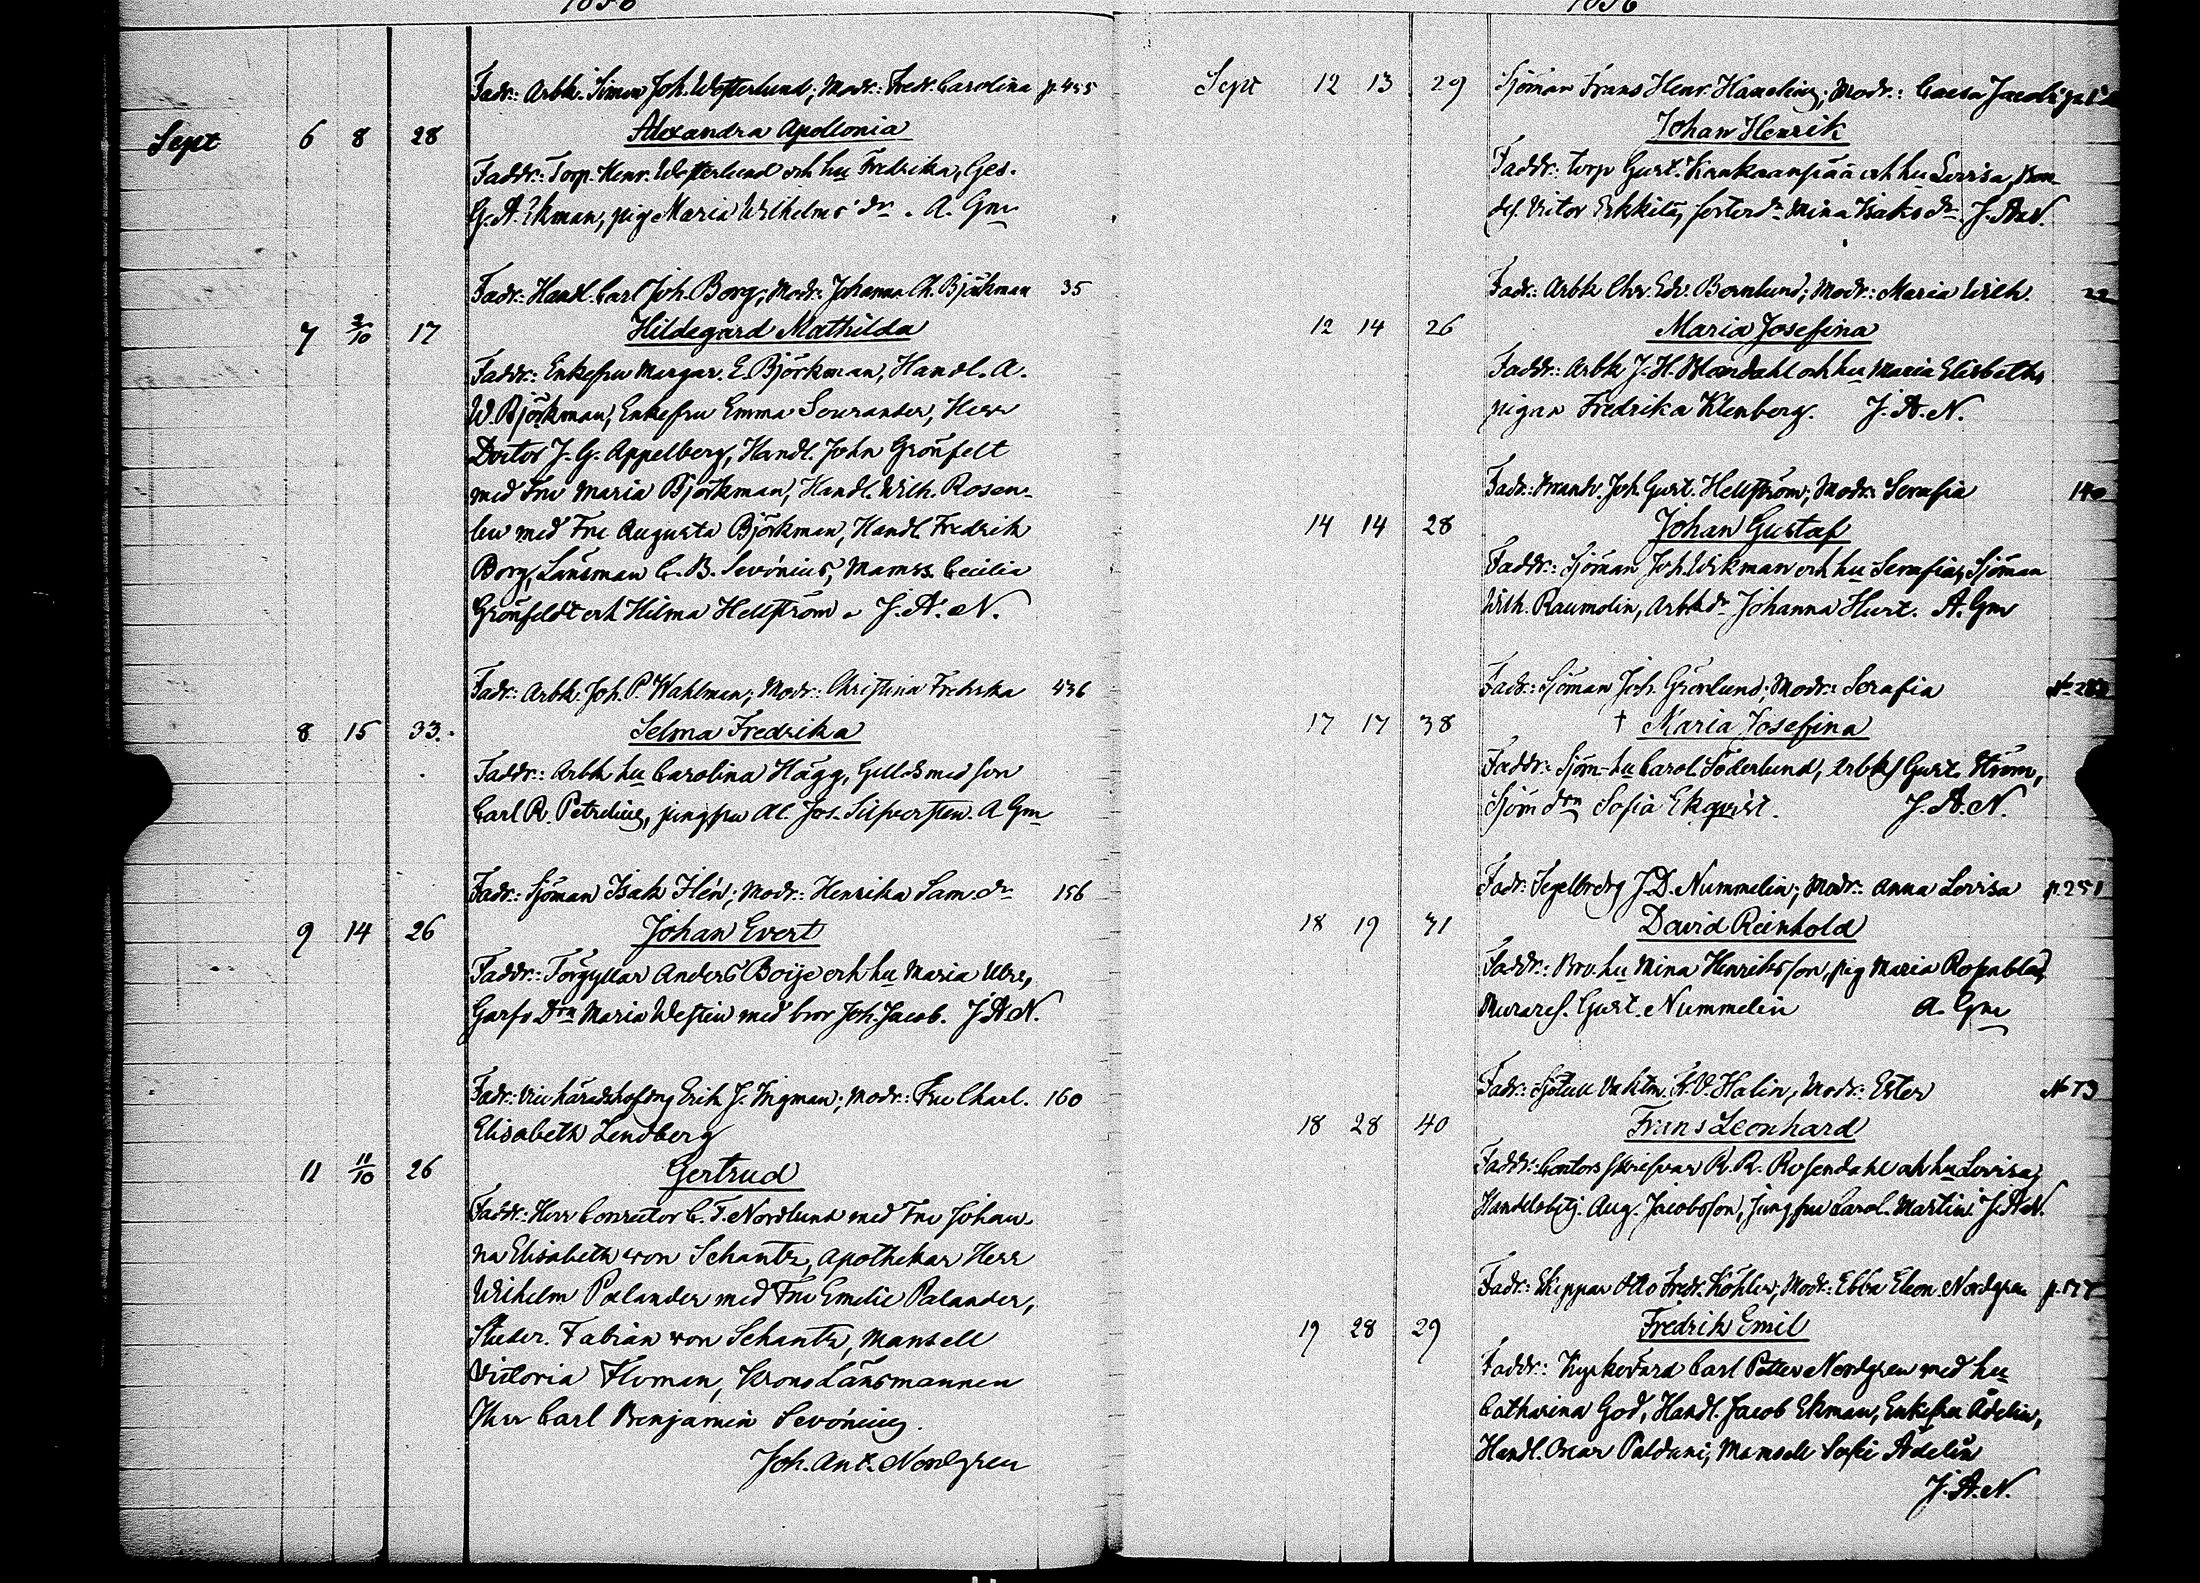 1856
Fadr: Arbk. Simon Joh. Westerlund; Modr: Fredr. Carolina p. 455
Sept 6 8 28 Alexandra Apollonia
Faddr: Torp. Henr. Westerlund och hu Fredrika, Ges.
G. A. Ekman, pig Maria Wilhelms dr. A. Gm
Fadr: Handl. Carl Joh. Borg; Modr: Johanna Ch. Björkman 35
7 2/10 17 Hildegard Mathilda
Faddr: Enkefru Margar. E. Björkman, Handl. A.
W. Björkman, Enkefru Emma Sourander, Herr
Doctor J. G. Appelberg, Handl. John Grönfelt
med Fru Maria Björkman, Handl. Wilh. Rosen-
lew med Fru Augusta Björkman, Handl. Fredrik
Borg, Länsman C. B. Sevónius, Mamss. Cecilia
Grönfeldt och Hilma Hellström. J. A. N.
Fadr: Arbk. Joh. P. Wahlman; Modr: Christina Fredrika 436
8 15 33. Selma Fredrika
Faddr: Arbk hu Carolina Hägg, Gulldsmed son
Carl R. Petrelius, jungfru Al. Jos. Silfversten. A Gm
Fadr: Sjöman Isak Ilén; Modr: Henrika Sam. dr 156
9 14 26 Johan Evert
Faddr: Förgyllar Anders Boije och hu Maria Ulr.,
Garfv. Drn Maria Westin med bror Joh. Jacob. J. A. N.
Fadr: Vice häradshöfdng Erik J. Ingman; Modr: Fru Charl. 160
Elisabeth Lendberg
11 11/10 26 Gertrud
Faddr: Herr Conrector C. F. Nordlund med Fru Johan-
na Elisabeth von Schantz, Apothekar Herr
Wilhelm Palander med Fru Emelie Palander,
Studer. Fabian von Schantz, Mansell
Victoria Floman, Krono Länsmannen
Herr Carl Benjamin Sevónius.
Joh. Ant. Nordgren
1856
Sept 12 13 29 Sjöman Frans Henr. Hameling; Modr: Caisa Jacobs
Johan Henrik
Faddr: torp Gust. Kankaanpää och hu Lovisa, Bon-
des. Victor Erkkilä, foster dr Mina Isaks dr. J. A. N.
Fadr: Arbk Chr. Edv. Bernlund; Modr: Maria Wilh. 22
12 14 26 Maria Josefina
Faddr: Arbk J. H. Blomdahl och hu Maria Elisbeth,
pigan Fredrika Klenberg. J. A. N.
Fadr: Joh. Gust. Hellström; Modr: Serafia 140
14 14 28 Johan Gustaf
Faddr: Sjöman Joh. Wikman och hu Serafia, Sjöman
Wilh. Raumolin, Arbk dr Johanna Hurt. A. Gm
Fadr: Sjöman Joh. Grönlund; Modr: Serafia
17 17 38 † Maria Josefina
Faddr: Sjöm. hu Carol. Söderlund, Arbks Gust. Ström,
Sjöm drn Sofia Ekqvist. J. A. N.
Fadr: Segelbrdrg J. D. Nummelin; Modr: Anna Lovisa p. 251
18 19 31 David Reinhold
Faddr: hu Mina Henriksson, pig Maria Rosenblad,
Murares. Gust. Nummelin A. Gm
Fadr: Sjötull Vaktm. K. V. Halin, Modr: Ester No 73
18 28 40 Frans Leonhard
Faddr: Contors skrifvar R. R. Rosendahl och hu Lovisa,
Handelsbtj. Aug. Jacobsson, Jungfru Carol. Martin. J. A. N.
Fadr: Skeppar Otto Fredr. Köhler; Modr: Ebba Eleon. Nordgren
19 28 29 Fredrik Emil
Faddr: Kyrkovärd Carl Petter Nordgren med hu
Catharina God, Handl. Jacob Ekman, Enkefru Ådelin,
Handl. Oscar Paldani, Mamsell Sofie Ådelin
J. A. N.